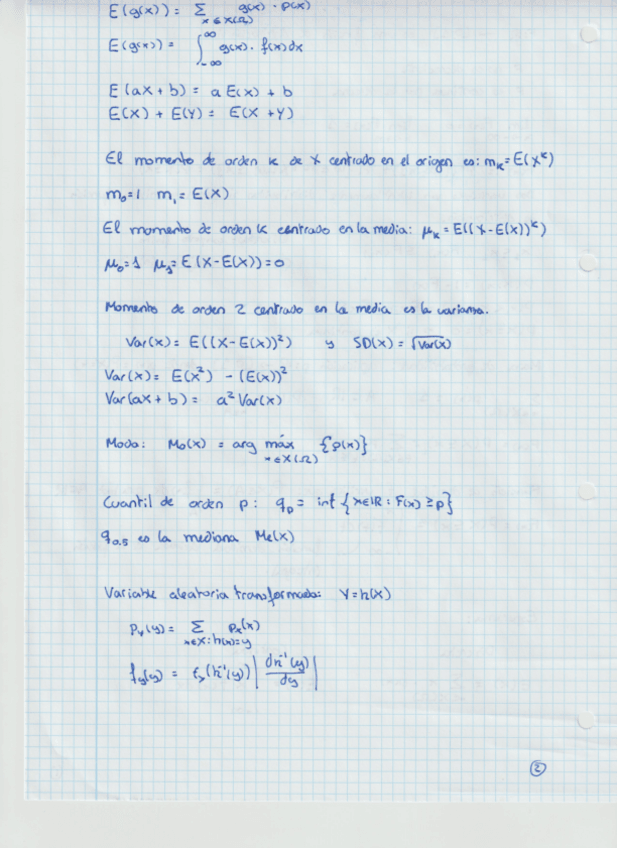 E(g(x)) = Σ g(x) · p(x)
x ∈ X(Ω)
E(g(x)) = ∫_{-∞}^{∞} g(x) · f(x)dx
E(aX + b) = a E(x) + b
E(X) + E(Y) = E(X + Y)
El momento de orden K de X centrado en el origen es: m_K = E(X^K)
m₀=1 m₁ = E(X)
El momento de orden K centrado en la media: μ_K = E((X-E(x))^K)
μ₀=1 μ₁= E(X-E(X))=0
Momento de orden 2 centrado en la media es la varianza.
Var(x) = E((X-E(x))²) y SD(x) = √Var(x)
Var(x) = E(x²) - (E(x))²
Var(ax + b) = a² Var(x)
Moda: Mo(x) = arg máx {p(x)}
x ∈ X(Ω)
Cuantil de orden p: q_p = inf {x∈ℝ : F(x) ≥ p}
q_{0,5} es la mediana Me(x)
Variable aleatoria transformada: Y=h(X)
p_Y(y) = Σ p_x(x)
x∈X:h(x)=y
f_y(y) = f_x(h⁻¹(y)) |dh⁻¹(y)/dy|
2